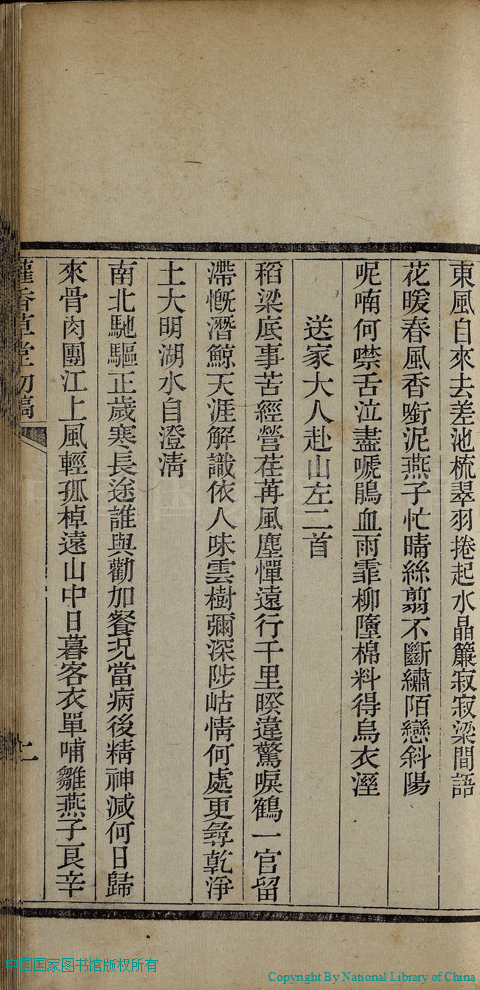 東風自來去差池梳翠羽捲起水晶簾寂寂梁間語
花暖春風香銜泥燕子忙晴絲翦不斷繡陌戀斜陽
呢喃何噤舌泣盡嗁鵑血雨霏柳墮棉料得烏衣溼
送家大人赴山左二首
稻梁底事苦經營荏苒風塵憚遠行千里暌違驚唳鶴一官留
滯慨潛鯨天涯解識依人味雲樹彌深陟岵情何處更尋乾淨
土大明湖水自澄清
南北馳驅正歲寒長途誰與勸加餐況當病後精神減何日歸
來骨肉團江上風輕孤棹遠山中日暮客衣單哺雛燕子艮辛
香草堂初稿
中国国家图书馆版权所有
Copyright By National Library of China